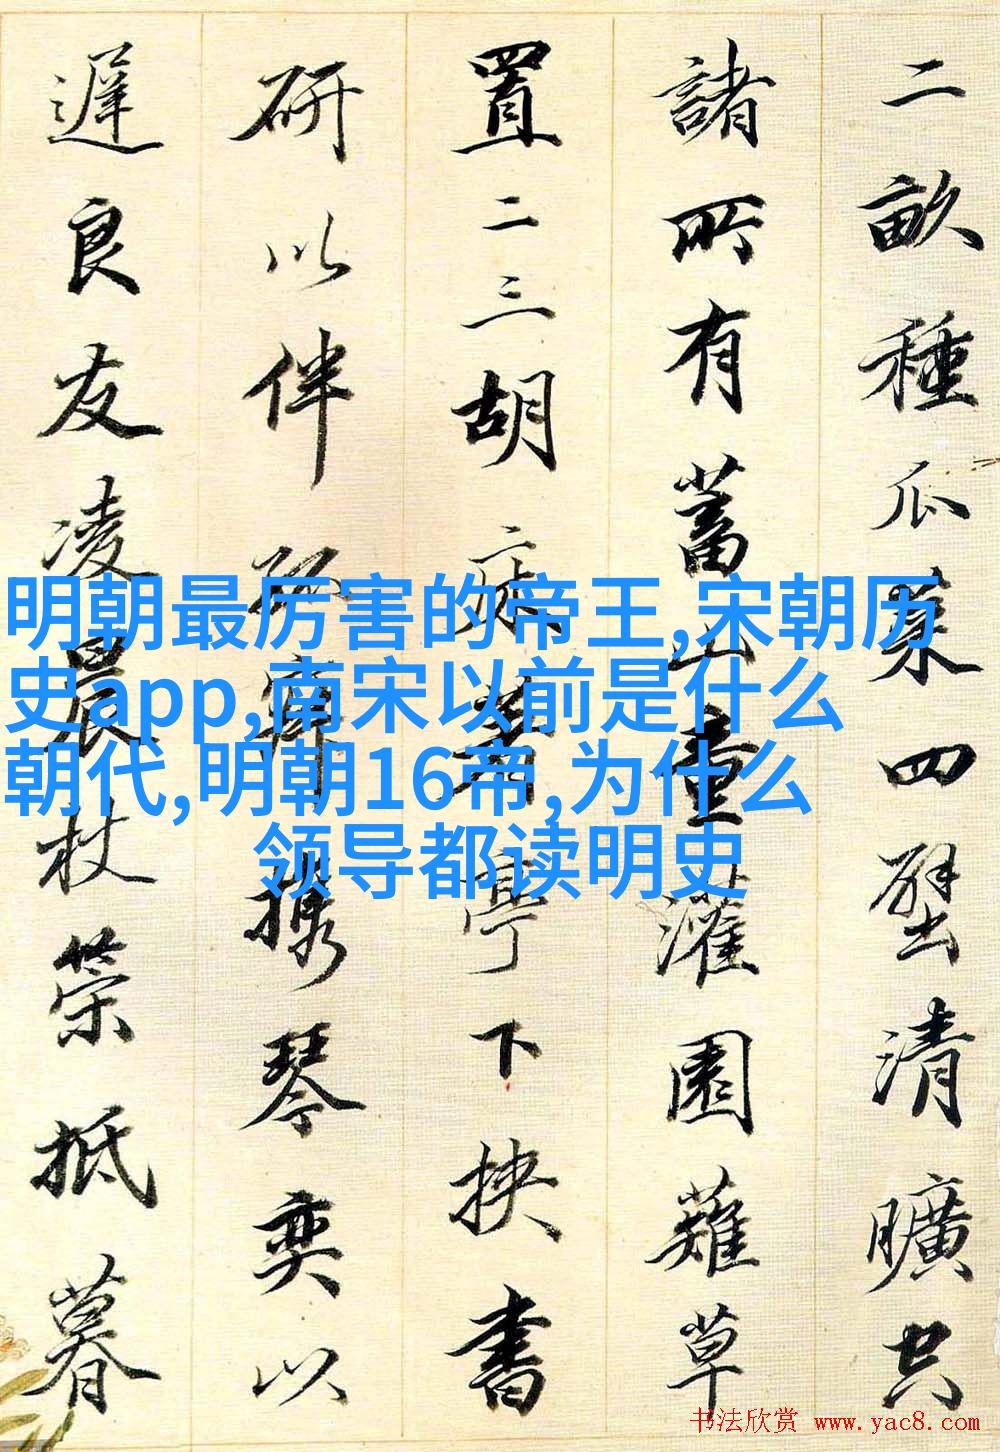 二畝種瓜菜四壁清曠空
諸所有蓄山童灌園薙草
置二三胡床著亭下挟書
研以伴孤寂携琴奕以
遲良友凌晨杖策抵暮
明朝最厉害的帝王,宋朝历
史app,南宋以前是什么
朝代,明朝16帝,为什么
领导都读明史
书法欣赏 www.yac8.com